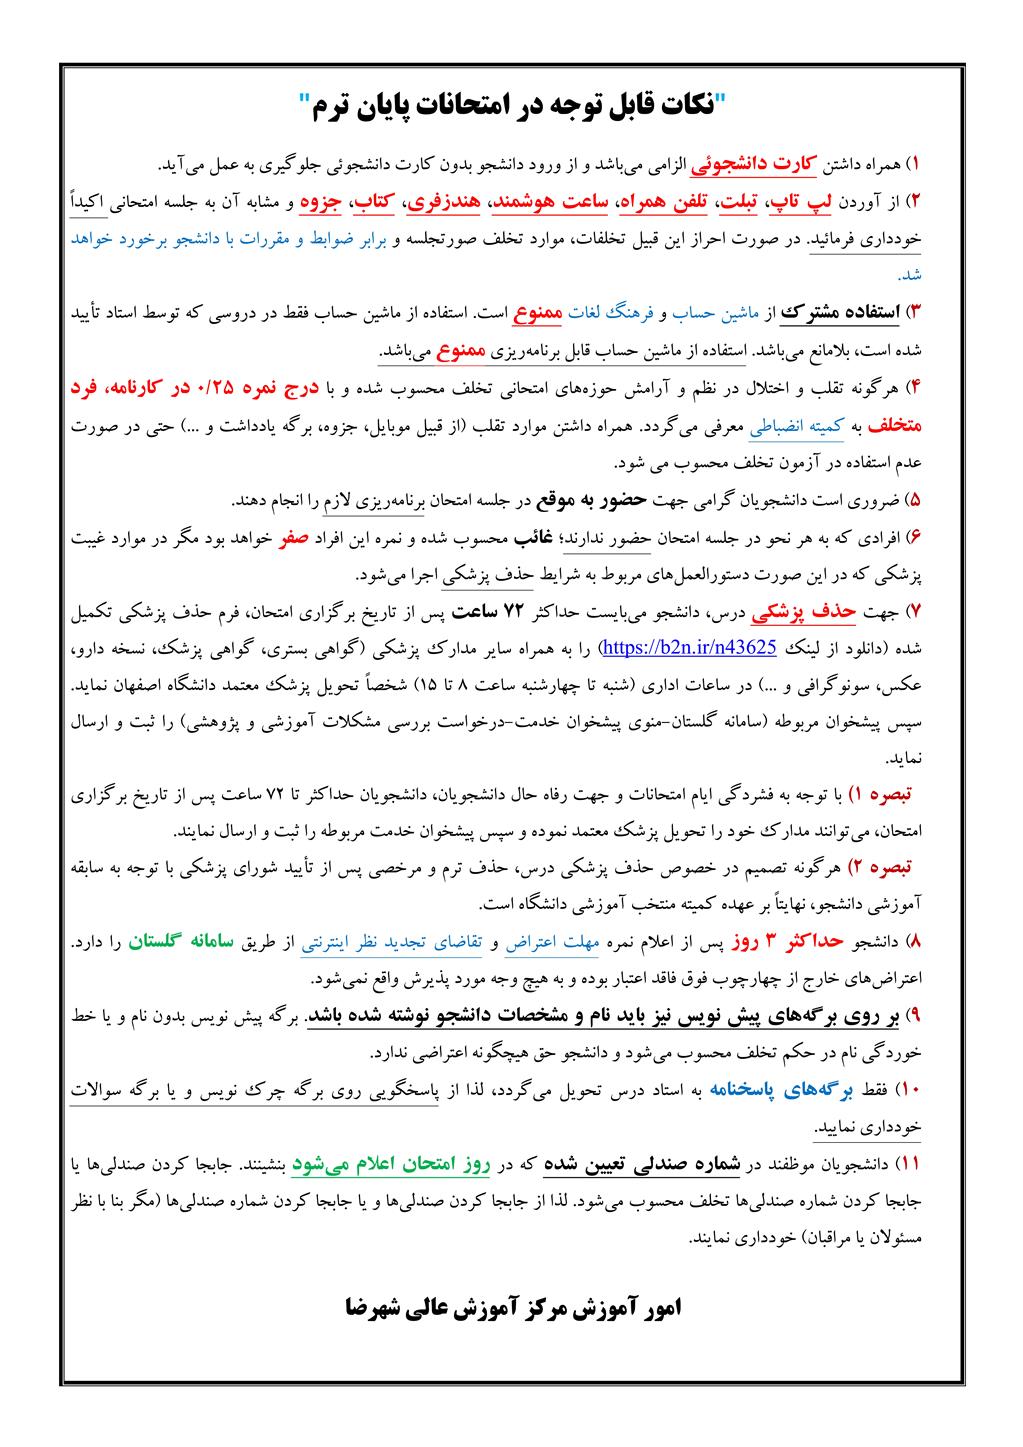 "نکات قابل توجه در امتحانات پایان ترم"
۱) همراه داشتن کارت دانشجوئی الزامی می‌باشد و از ورود دانشجو بدون کارت دانشجوئی جلوگیری به عمل می‌آید.
۲) از آوردن لپ تاپ، تبلت، تلفن همراه، ساعت هوشمند، هندزفری، کتاب، جزوه و مشابه آن به جلسه امتحانی اکیداً
خودداری فرمائید. در صورت احراز این قبیل تخلفات، موارد تخلف صورتجلسه و برابر ضوابط و مقررات با دانشجو برخورد خواهد
شد.
۳) استفاده مشترک از ماشین حساب و فرهنگ لغات ممنوع است. استفاده از ماشین حساب فقط در دروسی که توسط استاد تأیید
شده است، بلامانع می‌باشد. استفاده از ماشین حساب قابل برنامه‌ریزی ممنوع می‌باشد.
۴) هرگونه تقلب و اختلال در نظم و آرامش حوزه‌های امتحانی تخلف محسوب شده و با درج نمره ۰/۲۵ در کارنامه، فرد
متخلف به کمیته انضباطی معرفی می‌گردد. همراه داشتن موارد تقلب (از قبیل موبایل، جزوه، برگه یادداشت و ...) حتی در صورت
عدم استفاده در آزمون تخلف محسوب می شود.
۵) ضروری است دانشجویان گرامی جهت حضور به موقع در جلسه امتحان برنامه‌ریزی لازم را انجام دهند.
۶) افرادی که به هر نحو در جلسه امتحان حضور ندارند؛ غائب محسوب شده و نمره این افراد صفر خواهد بود مگر در موارد غیبت
پزشکی که در این صورت دستورالعمل‌های مربوط به شرایط حذف پزشکی اجرا می‌شود.
۷) جهت حذف پزشکی درس، دانشجو می‌بایست حداکثر ۷۲ ساعت پس از تاریخ برگزاری امتحان، فرم حذف پزشکی تکمیل
شده (دانلود از لینک https://b2n.ir/n43625) را به همراه سایر مدارک پزشکی (گواهی بستری، گواهی پزشک، نسخه دارو،
عکس، سونوگرافی و ...) در ساعات اداری (شنبه تا چهارشنبه ساعت ۸ تا ۱۵) شخصاً تحویل پزشک معتمد دانشگاه اصفهان نماید.
سپس پیشخوان مربوطه (سامانه گلستان-منوی پیشخوان خدمت-درخواست بررسی مشکلات آموزشی و پژوهشی) را ثبت و ارسال
نماید.
تبصره ۱) با توجه به فشردگی ایام امتحانات و جهت رفاه حال دانشجویان، دانشجویان حداکثر تا ۷۲ ساعت پس از تاریخ برگزاری
امتحان، می‌توانند مدارک خود را تحویل پزشک معتمد نموده و سپس پیشخوان خدمت مربوطه را ثبت و ارسال نمایند.
تبصره ۲) هرگونه تصمیم در خصوص حذف پزشکی درس، حذف ترم و مرخصی پس از تأیید شورای پزشکی با توجه به سابقه
آموزشی دانشجو، نهایتاً بر عهده کمیته منتخب آموزشی دانشگاه است.
۸) دانشجو حداکثر ۳ روز پس از اعلام نمره مهلت اعتراض و تقاضای تجدید نظر اینترنتی از طریق سامانه گلستان را دارد.
اعتراض‌های خارج از چهارچوب فوق فاقد اعتبار بوده و به هیچ وجه مورد پذیرش واقع نمی‌شود.
۹) بر روی برگه‌های پیش نویس نیز باید نام و مشخصات دانشجو نوشته شده باشد. برگه پیش نویس بدون نام و یا خط
خوردگی نام در حکم تخلف محسوب می‌شود و دانشجو حق هیچگونه اعتراضی ندارد.
۱۰) فقط برگه‌های پاسخنامه به استاد درس تحویل می‌گردد، لذا از پاسخگویی روی برگه چرک نویس و یا برگه سوالات
خودداری نمایید.
۱۱) دانشجویان موظفند در شماره صندلی تعیین شده که در روز امتحان اعلام می‌شود بنشینند. جابجا کردن صندلی‌ها یا
جابجا کردن شماره صندلی‌ها تخلف محسوب می‌شود. لذا از جابجا کردن صندلی‌ها و یا جابجا کردن شماره صندلی‌ها (مگر بنا با نظر
مسئولان یا مراقبان) خودداری نمایند.
امور آموزش مرکز آموزش عالی شهرضا